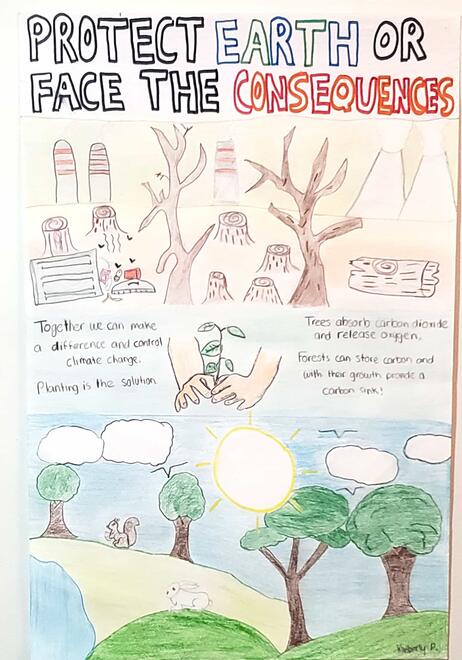 PROTECT EARTH OR
FACE THE CONSEQUENCES
Together we can make
a difference and control
climate change.
Planting is the solution
Trees absorb carbon dioxide
and release oxygen.
Forests can store carbon and
with their growth provide a
carbon sink!
Kimberly P.